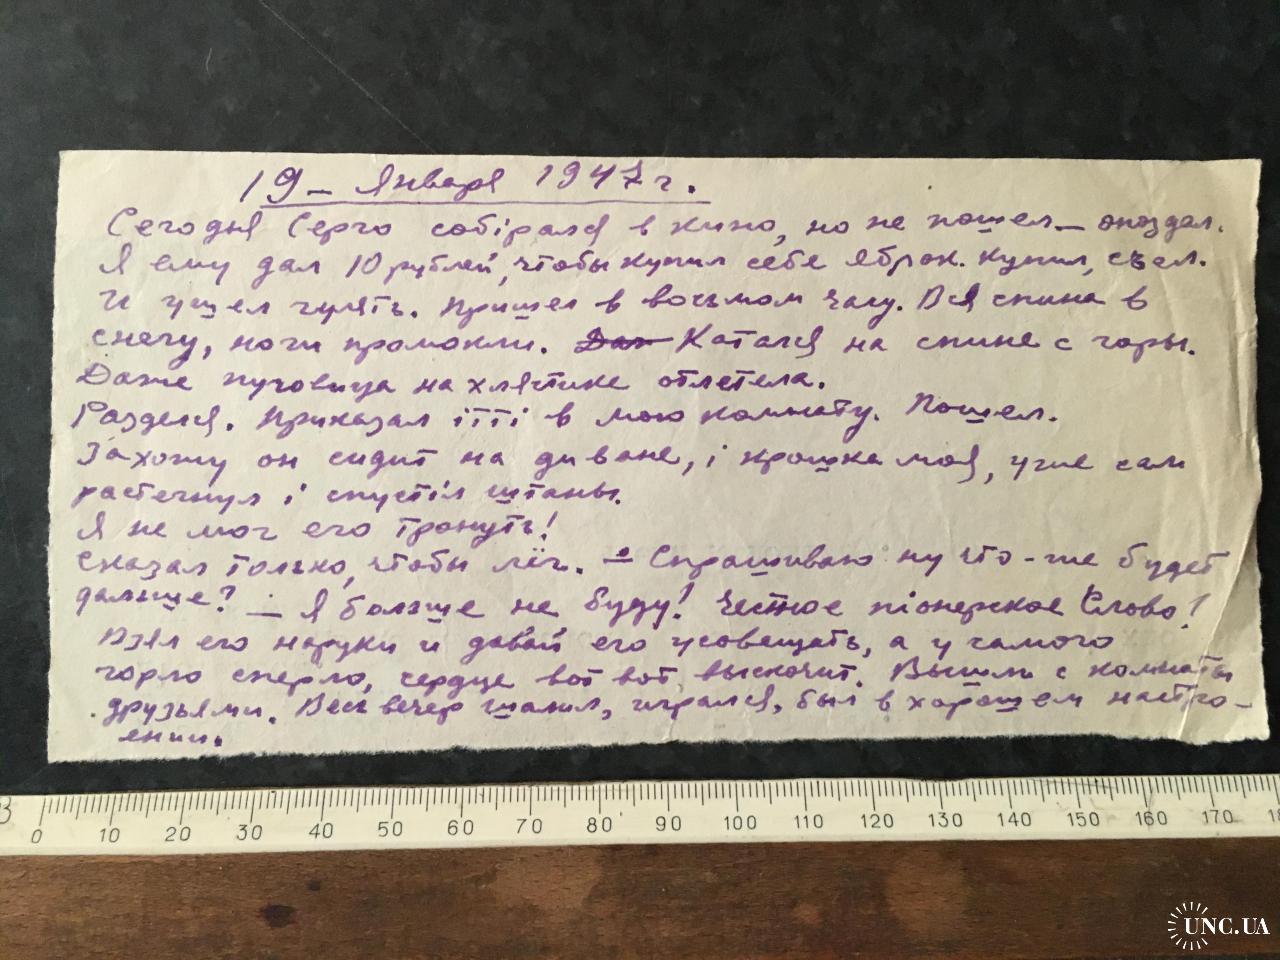 19 – Января 1947 г.
Сегодня Серго собірался в кино, но не пошел – опоздал.
Я ему дал 10 рублей, чтобы купил себе яблок. Купил, съел.
И ушел гулять. Пришел в восьмом часу. Вся спина в
снегу, ноги промокли. Катался на спине с горы.
Даже пуговица на хлястике отлетела.
Разделся. Приказал ітті в мою комнату. Пошел.
Захожу он сидит на диване, і крошка моя, уже сам
растегнул і спустіл штаны.
Я не мог его тронуть!
Сказал только, чтобы лёг. – Спрашиваю ну что-же будет
дальше? – Я больше не буду! Честное піонерское Слово!
Взял его наруки и давай его усовещать, а у самого
горло сперло, сердце вот вот выскочит. Вышли с комнаты
друзьями. Весь вечер шалил, игрался, был в хорошем настро-
ении.
0 10 20 30 40 50 60 70 80 90 100 110 120 130 140 150 160 170
UNC.UA